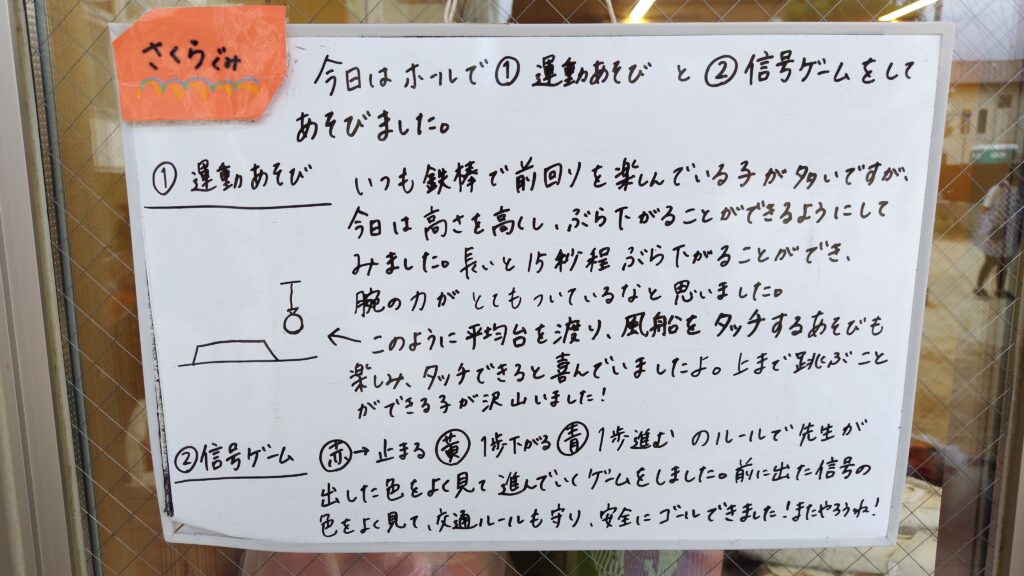 さくらぐみ
今日はホールで① 運動あそび と ②信号ゲームをして
あそびました。
① 運動あそび
いつも鉄棒で前回りを楽しんでいる子が多いですが、
今日は高さを高くし、ぶら下がることができるようにして
みました。長いと15秒程ぶら下がることができ、
腕の力がとてもついているなと思いました。
← このように平均台を渡り、風船をタッチするあそびも
楽しみ、タッチできると喜んでいましたよ。上まで跳ぶこと
ができる子が沢山いました!
②信号ゲーム
赤→止まる 黄 1歩下がる 青 1歩進む のルールで先生が
出した色をよく見て進んでいくゲームをしました。前に出た信号の
色をよく見て、交通ルールも守り、安全にゴールできました!またやろうね!